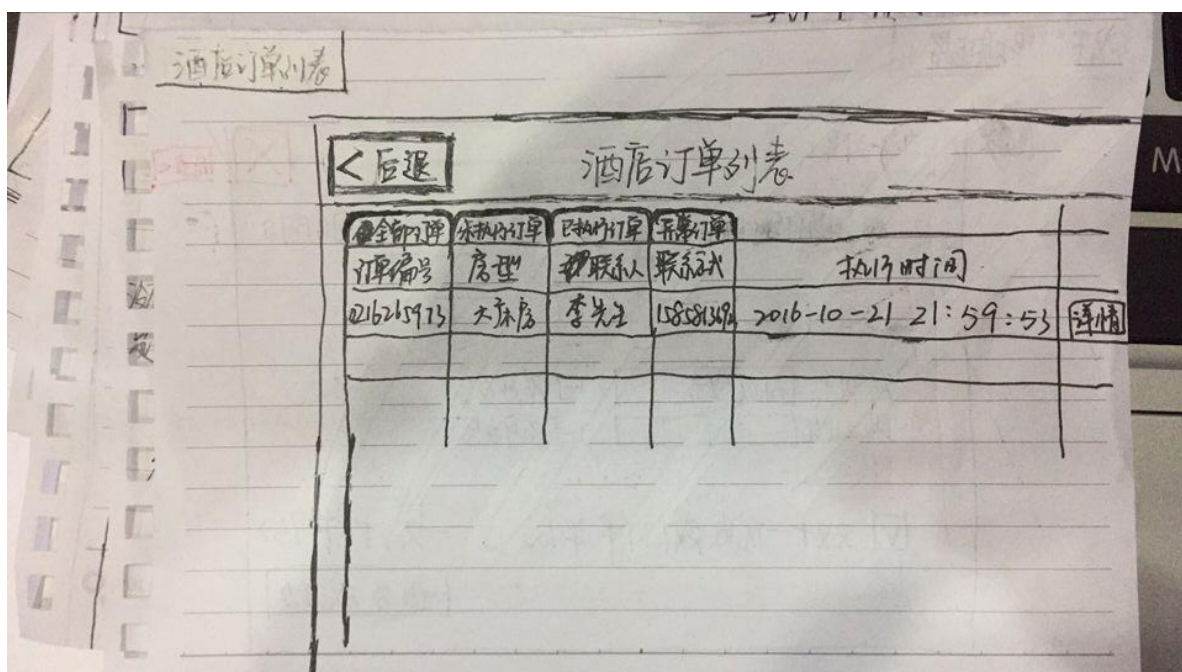 酒店订单列表
< 后退 酒店订单列表
全部订单 未执行订单 已执行订单 异常订单
订单编号 房型 联系人 联系方式 执行时间
大床房 李先生 2016-10-21 21:59:53 详情